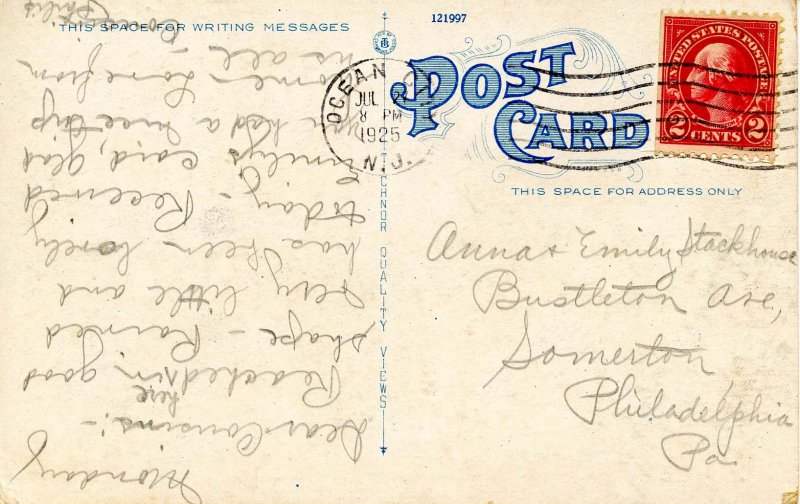 THIS SPACE FOR WRITING MESSAGES
121997
POST
CARD
OCEAN CITY
JUL
8 PM
1925
N.J.
UNITED STATES POSTAGE
2 CENTS 2
THIS SPACE FOR ADDRESS ONLY
TICHNOR QUALITY VIEWS
Anna & Emily Stackhouse
Bustleton Ave,
Somerton
Philadelphia
Pa
Monday
Dear Cousins:-
Reached here in good
shape - Rained
very little and
has been lovely
today - Received
Emilys card, glad
you had a nice trip
home - Love from
us all -
Cousin